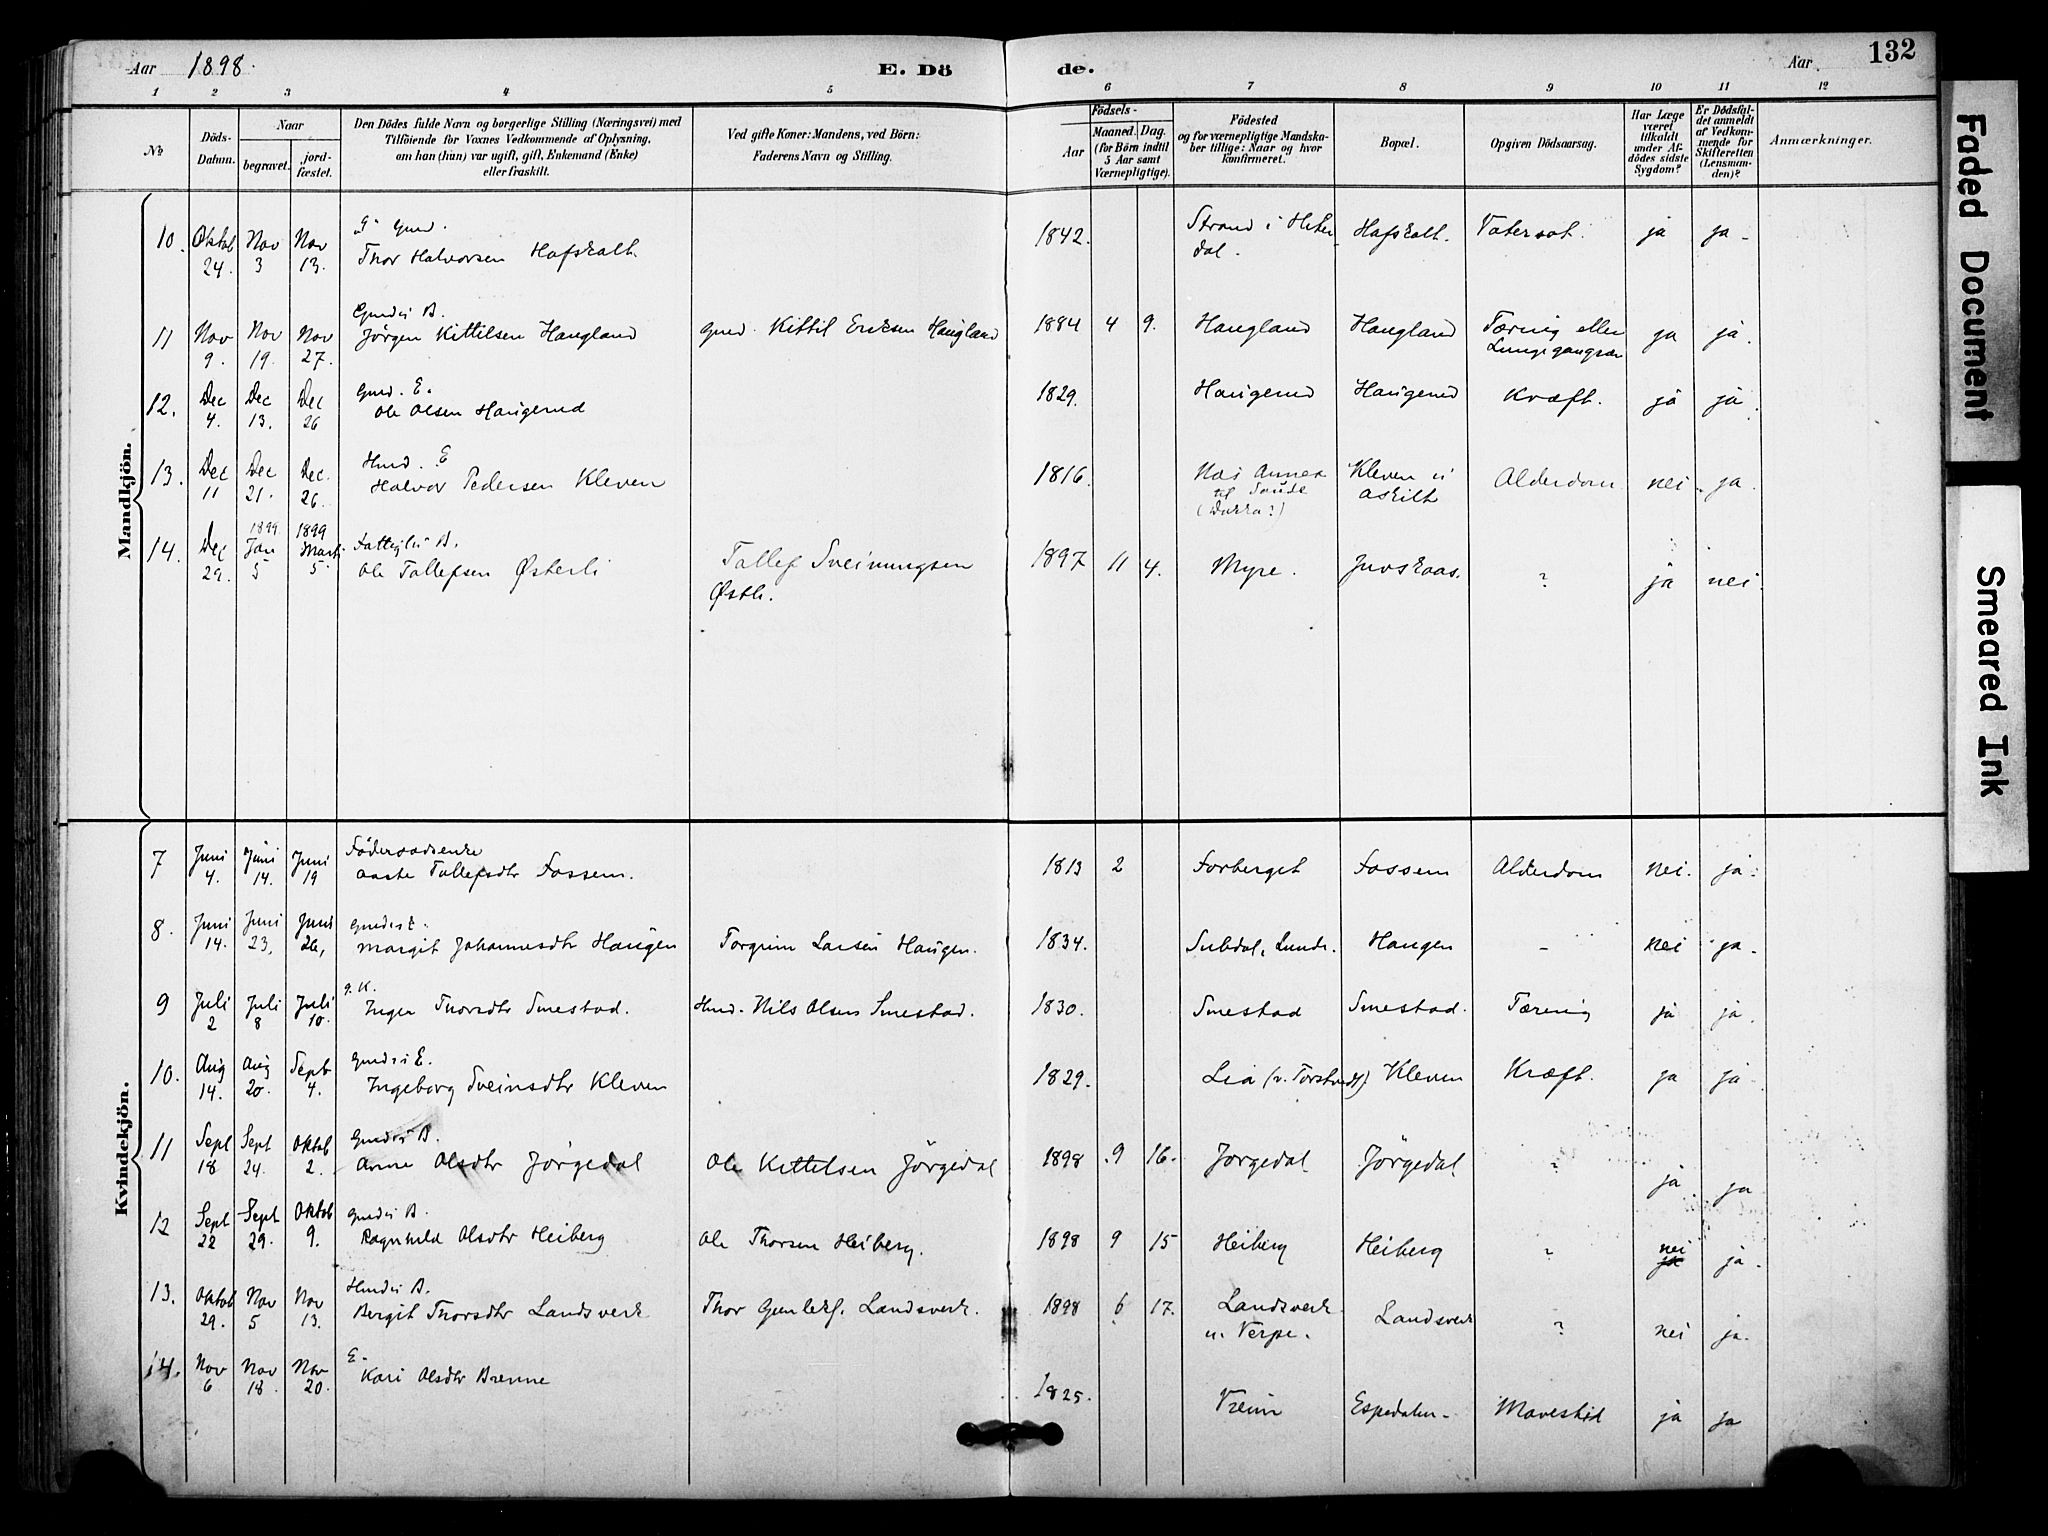 Aar 1898.
E. Dö
de.
Aar
132
1 2 3 4 5 6 7 8 9 10 11 12
№
Döds-Datum.
Naar
begravet.
jord-fæstet.
Den Dödes fulde Navn og borgerlige Stilling (Næringsvei) med
Tilföiende for Voxnes Vedkommende af Oplysning,
om han (hun) var ugift, gift, Enkemand (Enke)
eller fraskilt.
Ved gifte Koner: Mandens, ved Börn:
Faderens Navn og Stilling.
Födsels-
Aar
Maaned. Dag.
(for Börn indtil
5 Aar samt
Værnepligtige).
Födested
og for værnepligtige Mandska-
ber tillige: Naar og hvor
konfirmeret.
Bopæl.
Opgiven Dödsaarsag.
Har Læge
været
tilkaldt
under Af-
dödes sidste
Sygdom?
Er Dödsfal-
det anmeldt
af Vedkom-
mende for
Skifteretten
(Lensman-
den)?
Anmærkninger.
Mandkjön.
10. Oktob 24. Nov 3 Nov 13. Gmd. 1842. Strand i Hiterdal. ja ja
Thor Halvorsen
11 Nov 9. Nov 19. Nov 27. B.
Jörgen Kittilsen Haugland Gmd. Kittil Eriksen Haugland 1884 4 9. Haugland Haugland Tæring eller ja ja.
12. Dec 4. Dec 13. Dec 26 Gmd. E.
Ole Olsen Haugerud 1829. Haugerud Haugerud Kræft. ja ja.
13. Dec 11 Dec 21. Dec. 26. Hmd. E
Halvor Pedersen Kleven 1816. Næs Annex til Kleven Alderdom nei ja.
14. Dec 29. 1899 Jan 5 1899 Marts 5. B.
Ole Tollefsen Østerli Tollef Sveinungsen 1897 11 4. Myre. ? ja nei.
Kvindekjön.
7 Juni 4. Juni 14. Juni 19 Föderaadsenke
Aaste Tollefsdtr Fossem. 1813 2 Forberget Fossem Alderdom nei. ja.
8. Juni 14. Juni 23, Juni 26,
Margit Johannesdtr Haugen Torgrim Larsen Haugen. 1834. Haugen – nei ja.
9 Juli 2 Juli 8 Juli 10. g. K.
Inger Thorsdtr Smestad. Hmd. Nils Olsen Smestad. 1830. Smestad Smestad. Tæring ja ja.
10. Aug 14. Aug 20. Sept 4. E.
Ingeborg Sveinsdtr Kleven 1829. Lia Kleven Kræft. ja ja.
11 Sept 18 Sept 24. Oktob 2. B.
Anne Olsdtr Jörgedal Ole Kittilsen Jörgedal 1898 9 16. Jörgedal Jörgedal ? ja ja
12 Sept 22 Sept 29. Oktob 9. B.
Ragnhild Olsdtr Heiberg Ole Thorsen Heiberg. 1898 9 15 Heiberg Heiberg ? nei ja.
13. Oktob 29. Nov 5 Nov 13. B.
Bergit Thorsdtr Landsverk Thor Gunleks. Landsverk. 1898 6 17. Landsverk Landsverk ? nei ja.
u. Verpe.
14. Nov 6 Nov 18 Nov 20. E.
Kari Olsdtr Brenne 1825. Vreim Espedalen ja ja
Faded Document
Smeared Ink